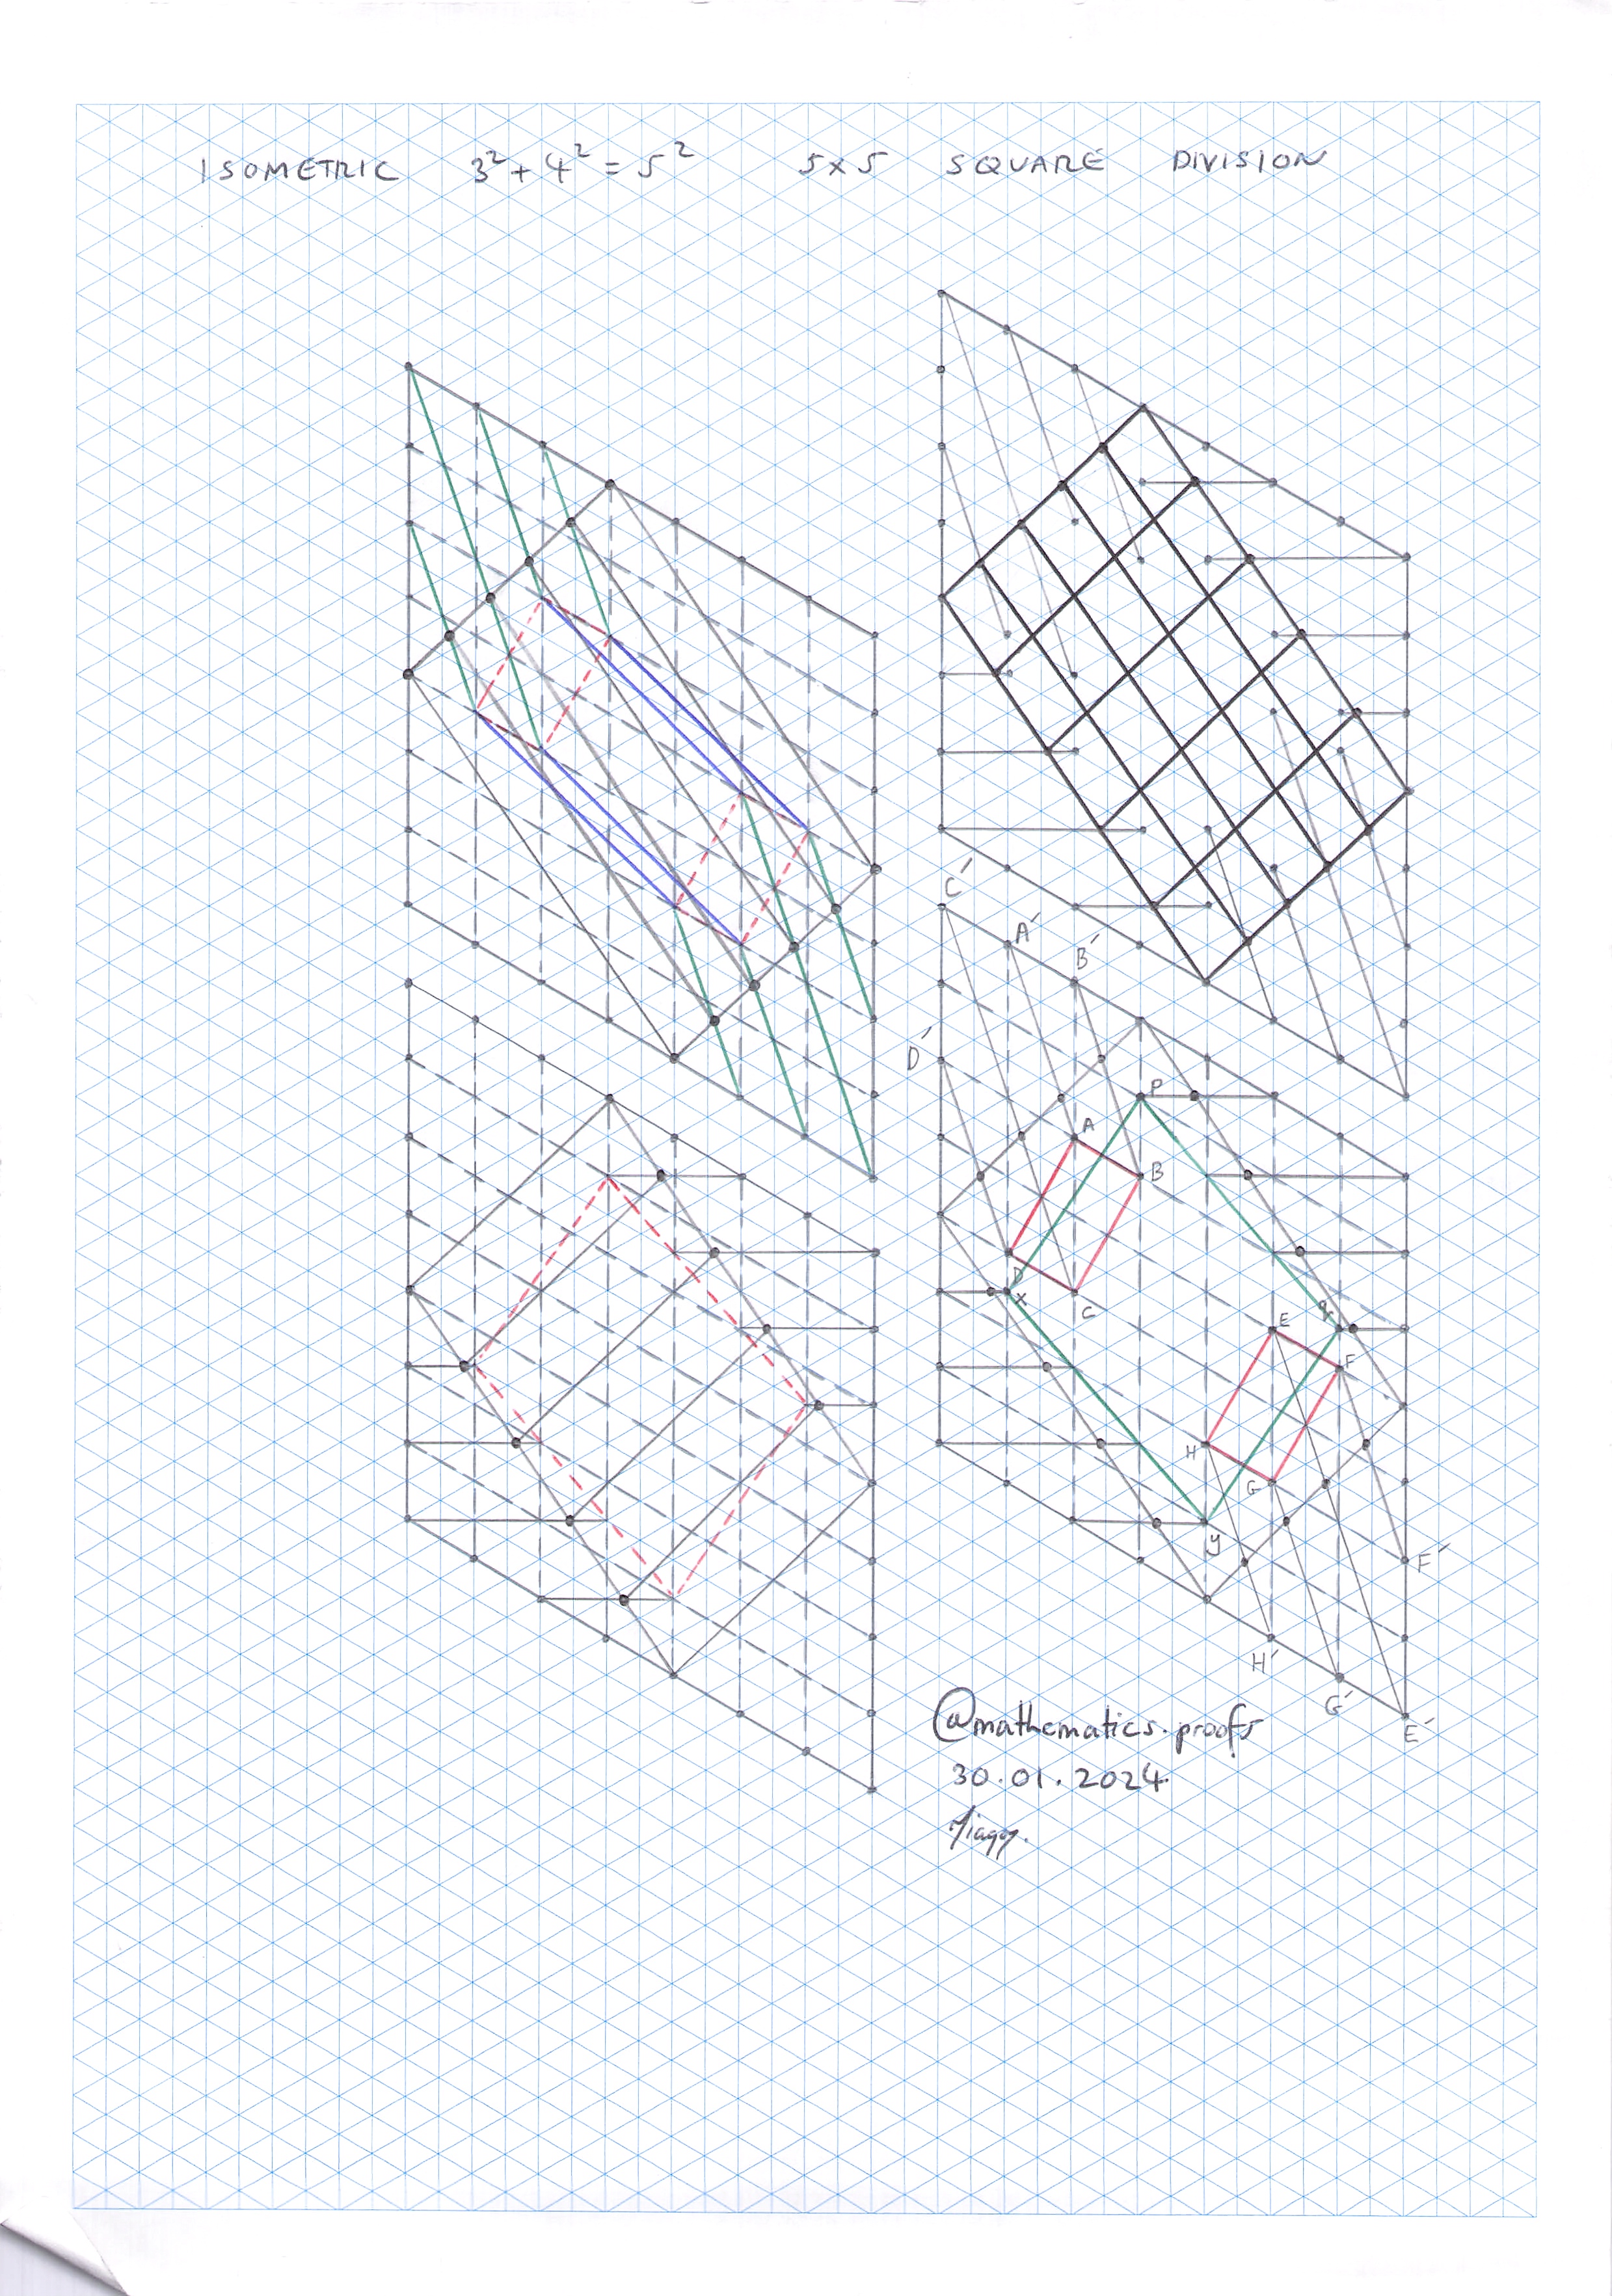 ISOMETRIC 3²+4²=5² 5x5 SQUARE DIVISION
C´
A´
B´
D´
P
A
B
D
X
C
E
q
F
H
G
y
F´
H´
G´
E´
@mathematics.proofs
30.01.2024